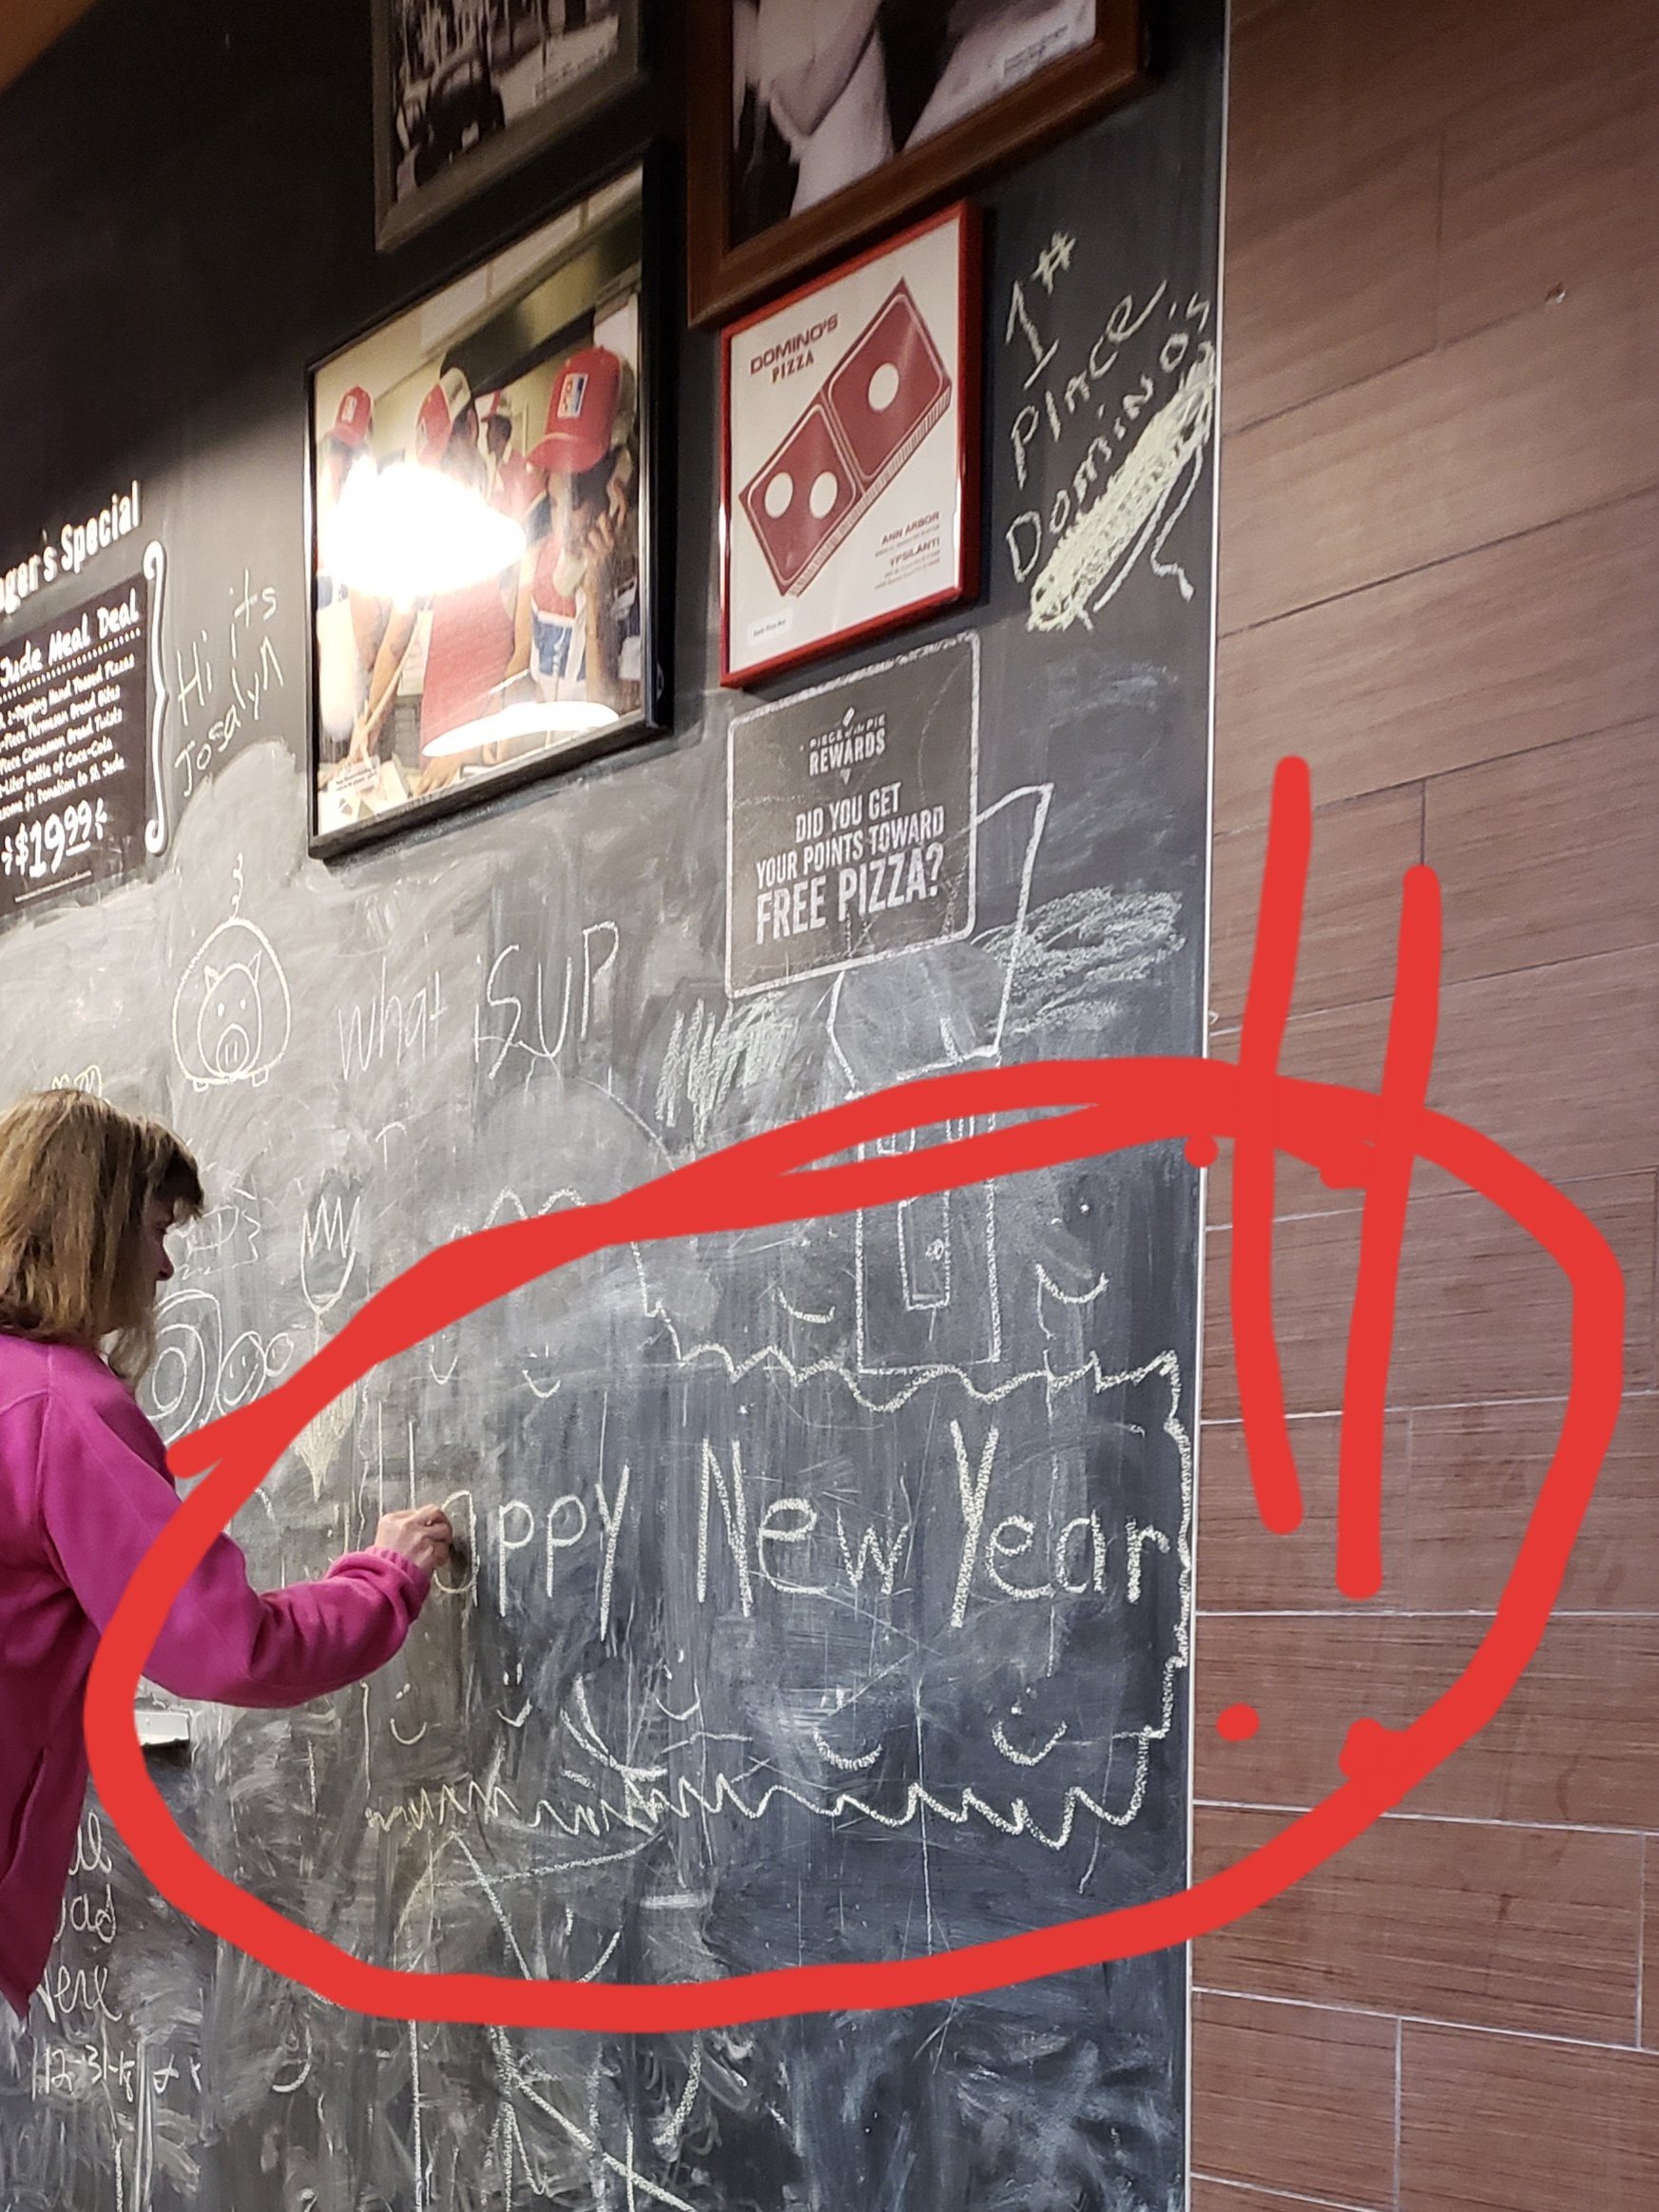 1#
Place
Domino's
DOMINO'S
PIZZA
ANN ARBOR
YPSILANTI
ger's Special
Jude Meal Deal
2-Topping Hand Tossed Pizzas
-Piece Parmesan Bread Bites
Piece Cinnamon Bread Twists
-Liter Bottle of Coca-Cola
$1 Donation to St. Jude
$19.99
Hi its
Josalyn
PIECE of the PIE
REWARDS
DID YOU GET
YOUR POINTS TOWARD
FREE PIZZA?
what isUP
Happy New Year
!!